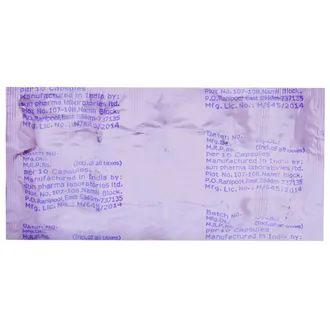 per 10 Capsules
Manufactured in India by:
sun pharma laboratories ltd.
Plot No.107-108, Namli Block,
P.O.Ranipool, East Sikkim-737135
Mfg. Lic. No.: M/645/2014
Plot No.107-108, Namli Block,
P.O.Ranipool, East Sikkim-737135
Mfg. Lic. No.: M/645/2014
Batch No.
M.R.P.Rs. (Incl.of all taxes)
per 10 Capsules
Manufactured in India by:
sun pharma laboratories ltd.
Plot No.107-108, Namli Block,
P.O.Ranipool, East Sikkim-737135
Mfg. Lic. No.: M/645/2014
Batch No.
(Incl.of all taxes)
per 10 Capsules
Manufactured in India by:
sun pharma laboratories ltd.
Plot No.107-108, Namli Block,
P.O.Ranipool, East Sikkim-737135
Mfg. Lic. No.: M/645/2014
Batch No.
M.R.P.Rs. (Incl.of all taxes)
per 10 Capsules
Batch No.
M.R.P.Rs. (Incl.of all taxes)
per 10 Capsules
Manufactured in India by: